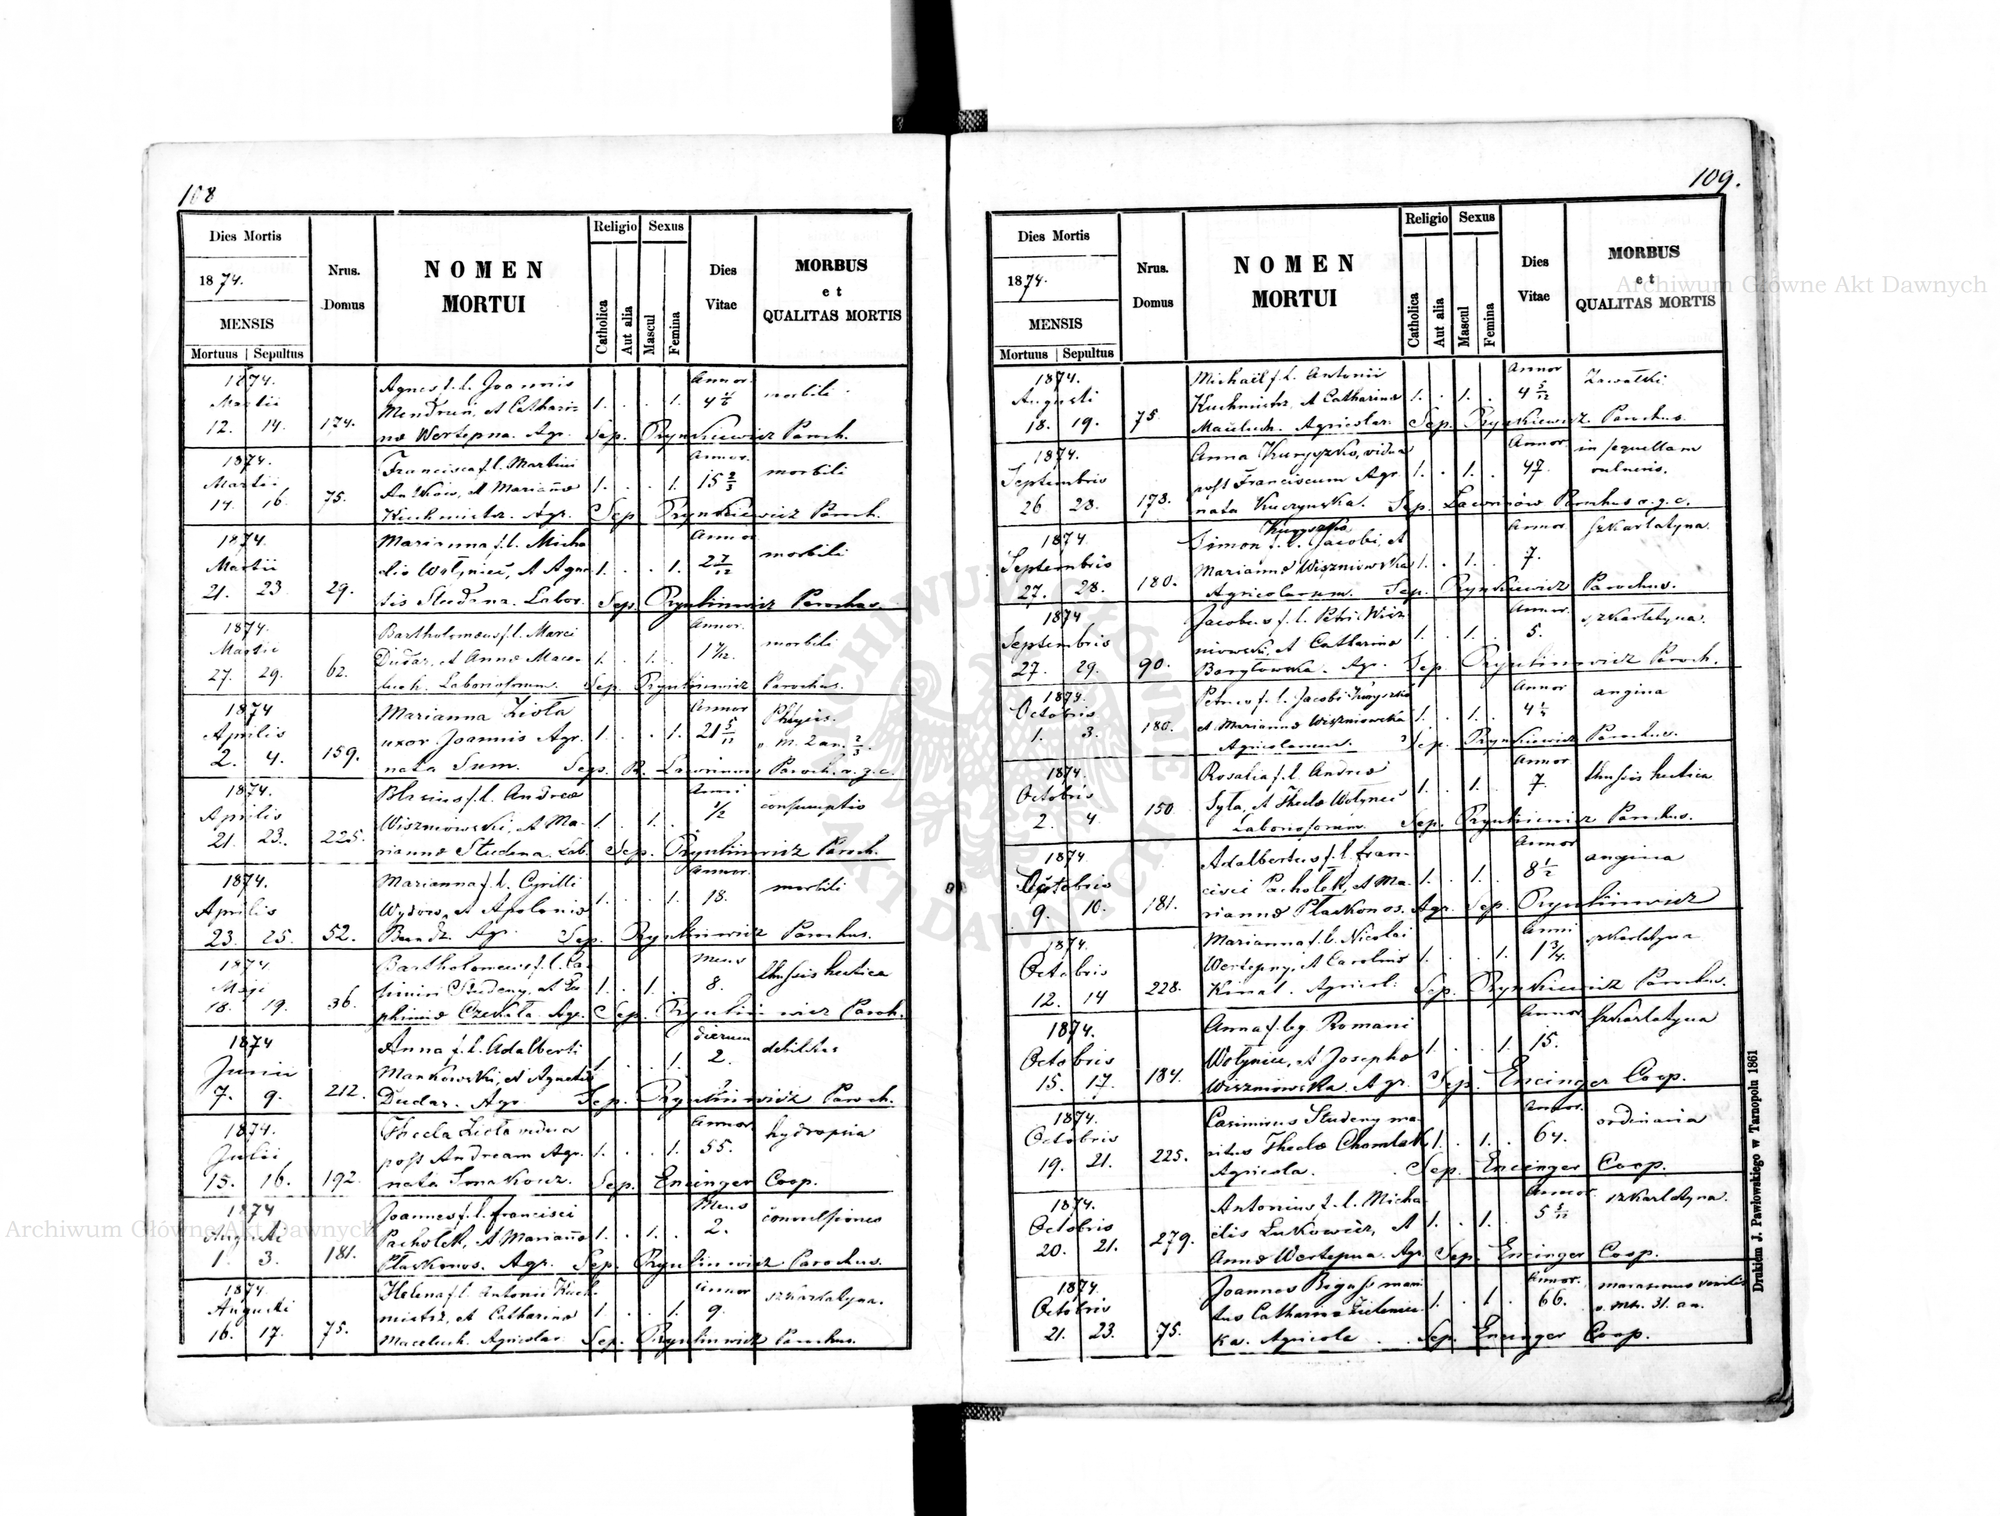 108
Dies Mortis
1874.
MENSIS
Mortuus | Sepultus
Nrus.
Domus
NOMEN
MORTUI
Religio
Catholica
Aut alia
Sexus
Mascul
Femina
Dies
Vitae
MORBUS
et
QUALITAS MORTIS
1874. Agnes f. l. Joannis Annor.
Martii Mendrun, et Cathari- 1. . . 1. 4 morbili
12. 14. 174. næ Wertepna. Agr. Sep. Prynkiewicz Paroch.
1874. Francisca f. l. Martini Annor.
Martii et Mariannæ 1. . . 1. 15 2/3 morbili
14. 16. 75. Kuchmistrz. Agr. Sep. Prynkiewicz Paroch.
1874. Marianna f. l. Micha Annor
Martii elis Wołyniec, et Agne 1. . . 1. 2 7/12 morbili
21. 23. 29. tis Studena. Labor. Sep. Prynkiewicz Parochus.
1874. Bartholomæus f. l. Marci Annor.
Martii Dudar, et Annæ Mace- 1. . 1. . morbili
27. 29. 62. luch. Laboriosorum. Sep. Prynkiewicz Parochus.
1874 Marianna Zioła Annor Phtysis.
Aprilis uxor Joannis Agr. 1. . . 1. 21 5/12 v. m. 2 an. 2/3.
2. 4. 159. nata Sum. Sep. R. Lawrinow Paroch. r. g. c.
1874. Blasius f. l. Andreæ Anni
Aprilis Wiszniowski, et Ma- 1. . 1. . 1/2 consumptio
21. 23. 225. riannæ Studena. Lab. Sep. Prynkiewicz Paroch.
1874. Marianna f. l. Cyrilli Annor.
Aprilis Wydow, et Apoloniæ 1. . . 1. 18. morbili
23. 25. 52. Agr. Sep. Prynkiewicz Parochus.
1874 Bartholomeus f. l. Ca- Mens
Maji simiri Studeny, et Eu 1. . 1. . 8. thussis hectica
18. 19. 36. phimiæ Czekała. Agr. Sep. Prynkiewicz Paroch.
1874 Anna f. l. Adalberti dierum
Junii Mankowski, et Agnetis 1. . . 1. 2. debilitas
7. 9. 212. Dudar. Agr. Sep. Prynkiewicz Paroch.
1874. Thecla Zioła vidua Annor
Julii post Andream Agr. 1. . . 1. 55. hydropsia
15. 16. 192. nata Smakouz. Sep. Encinger Coop.
1874 Joannes f. l. Francisci Mens
Augusti Pachołek, et Mariannæ 1. . 1. . 2. convulsiones
1. 3. 181. Płaskonos. Agr. Sep. Prynkiewicz Parochus.
1874 Helena f. l. Antonii Kuch- Annor
Augusti mistrz, et Catharinæ 1. . . 1. 9. szkarlatyna.
16. 17. 75. Maceluch. Agricolar. Sep. Prynkiewicz Parochus.
109.
Dies Mortis
1874.
MENSIS
Mortuus | Sepultus
Nrus.
Domus
NOMEN
MORTUI
Religio
Catholica
Aut alia
Sexus
Mascul
Femina
Dies
Vitae
MORBUS
et
QUALITAS MORTIS
1874. Michaël f. l. Antonii Annor
Augusti Kuchmistrz, et Catharinæ 1. . 1. . 4 5/12 Zawałki
18. 19. 75. Maceluch. Agricolar. Sep. Prynkiewicz Parochus.
1874. Anna Kuryszko, vidua Annor in sequellam
Septembris post Franciscum Agr. 1. . 1. . 47. vulneris.
26. 28. 173. nata Kuczynska. Sep. Lawrinów Parochus r. g. c.
1874 Simon f. l. Jacobi Kuryszko, et Annor szkarlatyna
Septembris Mariannæ Wiszniowska 1. . 1. . 7.
27. 28. 180. Agricolarum. Sep. Prynkiewicz Parochus.
1874 Jacobus f. l. Petri Wisz Annor.
Septembris niowski, et Catharinæ 1. . 1. . 5. szkarlatyna.
27. 29. 90. Boryłowska. Agr. Sep. Prynkiewicz Paroch.
1874. Petrus f. l. Jacobi Kuryszko Annor angina
Octobris et Mariannæ Wiszniowska 1. . 1. . 4
1. 3. 180. Agricolarum. Sep. Prynkiewicz Parochus.
1874. Rosalia f. l. Andreæ Annor
Octobris Syła, et Theclæ Wołyniec 1. . 1. . 7. thussis hectica
2. 4. 150. Laboriosorum. Sep. Prynkiewicz Parochus.
1874. Adalbertus f. l. Fran- Annor
Octobris cisci Pachołek, et Ma- 1. . 1. . 8 1/2 angina
9. 10. 181. riannæ Płaskonos. Agr. Sep. Prynkiewicz
1874. Marianna f. l. Nicolai Anni
Octobris Wertepny, et Carolinæ 1. . . 1. 1 3/4. szkarlatyna
12. 14 228. Kinal. Agricol: Sep. Prynkiewicz Parochus.
1874. Anna f. leg. Romani Annor szkarlatyna
Octobris Wołyniec, et Josephæ 1. . . 1. 15.
15. 17. 184. Wiszniowska. Agr. Sep. Encinger Coop.
1874. Casimirus Studeny ma- Annor. ordinaria
Octobris ritus Theclæ Chomlak 1. . 1. . 64.
19. 21. 225. Agricola. Sep. Encinger Coop.
1874. Antonius f. l. Micha- Annor. szkarlatyna.
Octobris ëlis Lukowicz, et 1. . 1. . 5 5/12
20. 21. 279. Annæ Wertepna. Agr. Sep. Encinger Coop.
1874. Joannes Bigass mari Annor. marasmus senilis
Octobris tus Catharinæ Zielenic- 1. . 1. . 66. v. mtr. 31. an.
21. 23. 75. ka. Agricola. Sep. Encinger Coop.
Drukiem J. Pawłowskiego w Tarnopolu 1861
Archiwum Główne Akt Dawnych
Archiwum Główne Akt Dawnych
ARCHIWUM GŁÓWNE AKT DAWNYCH